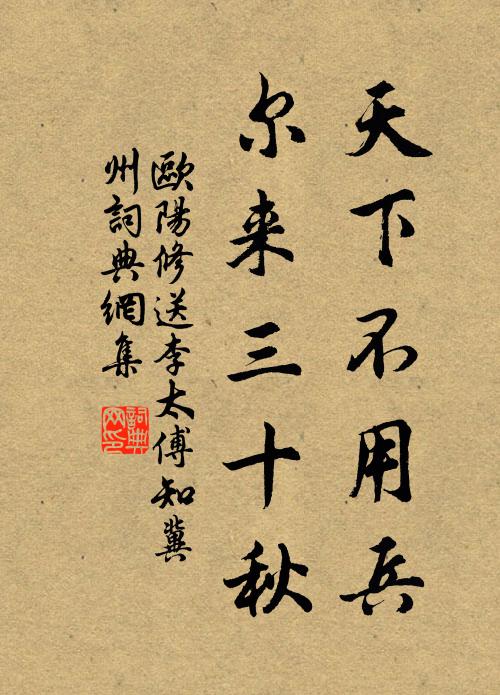 天下不用兵
尔来三十秋
歐陽修送李太傅知冀
州詞典網集
詞典网印